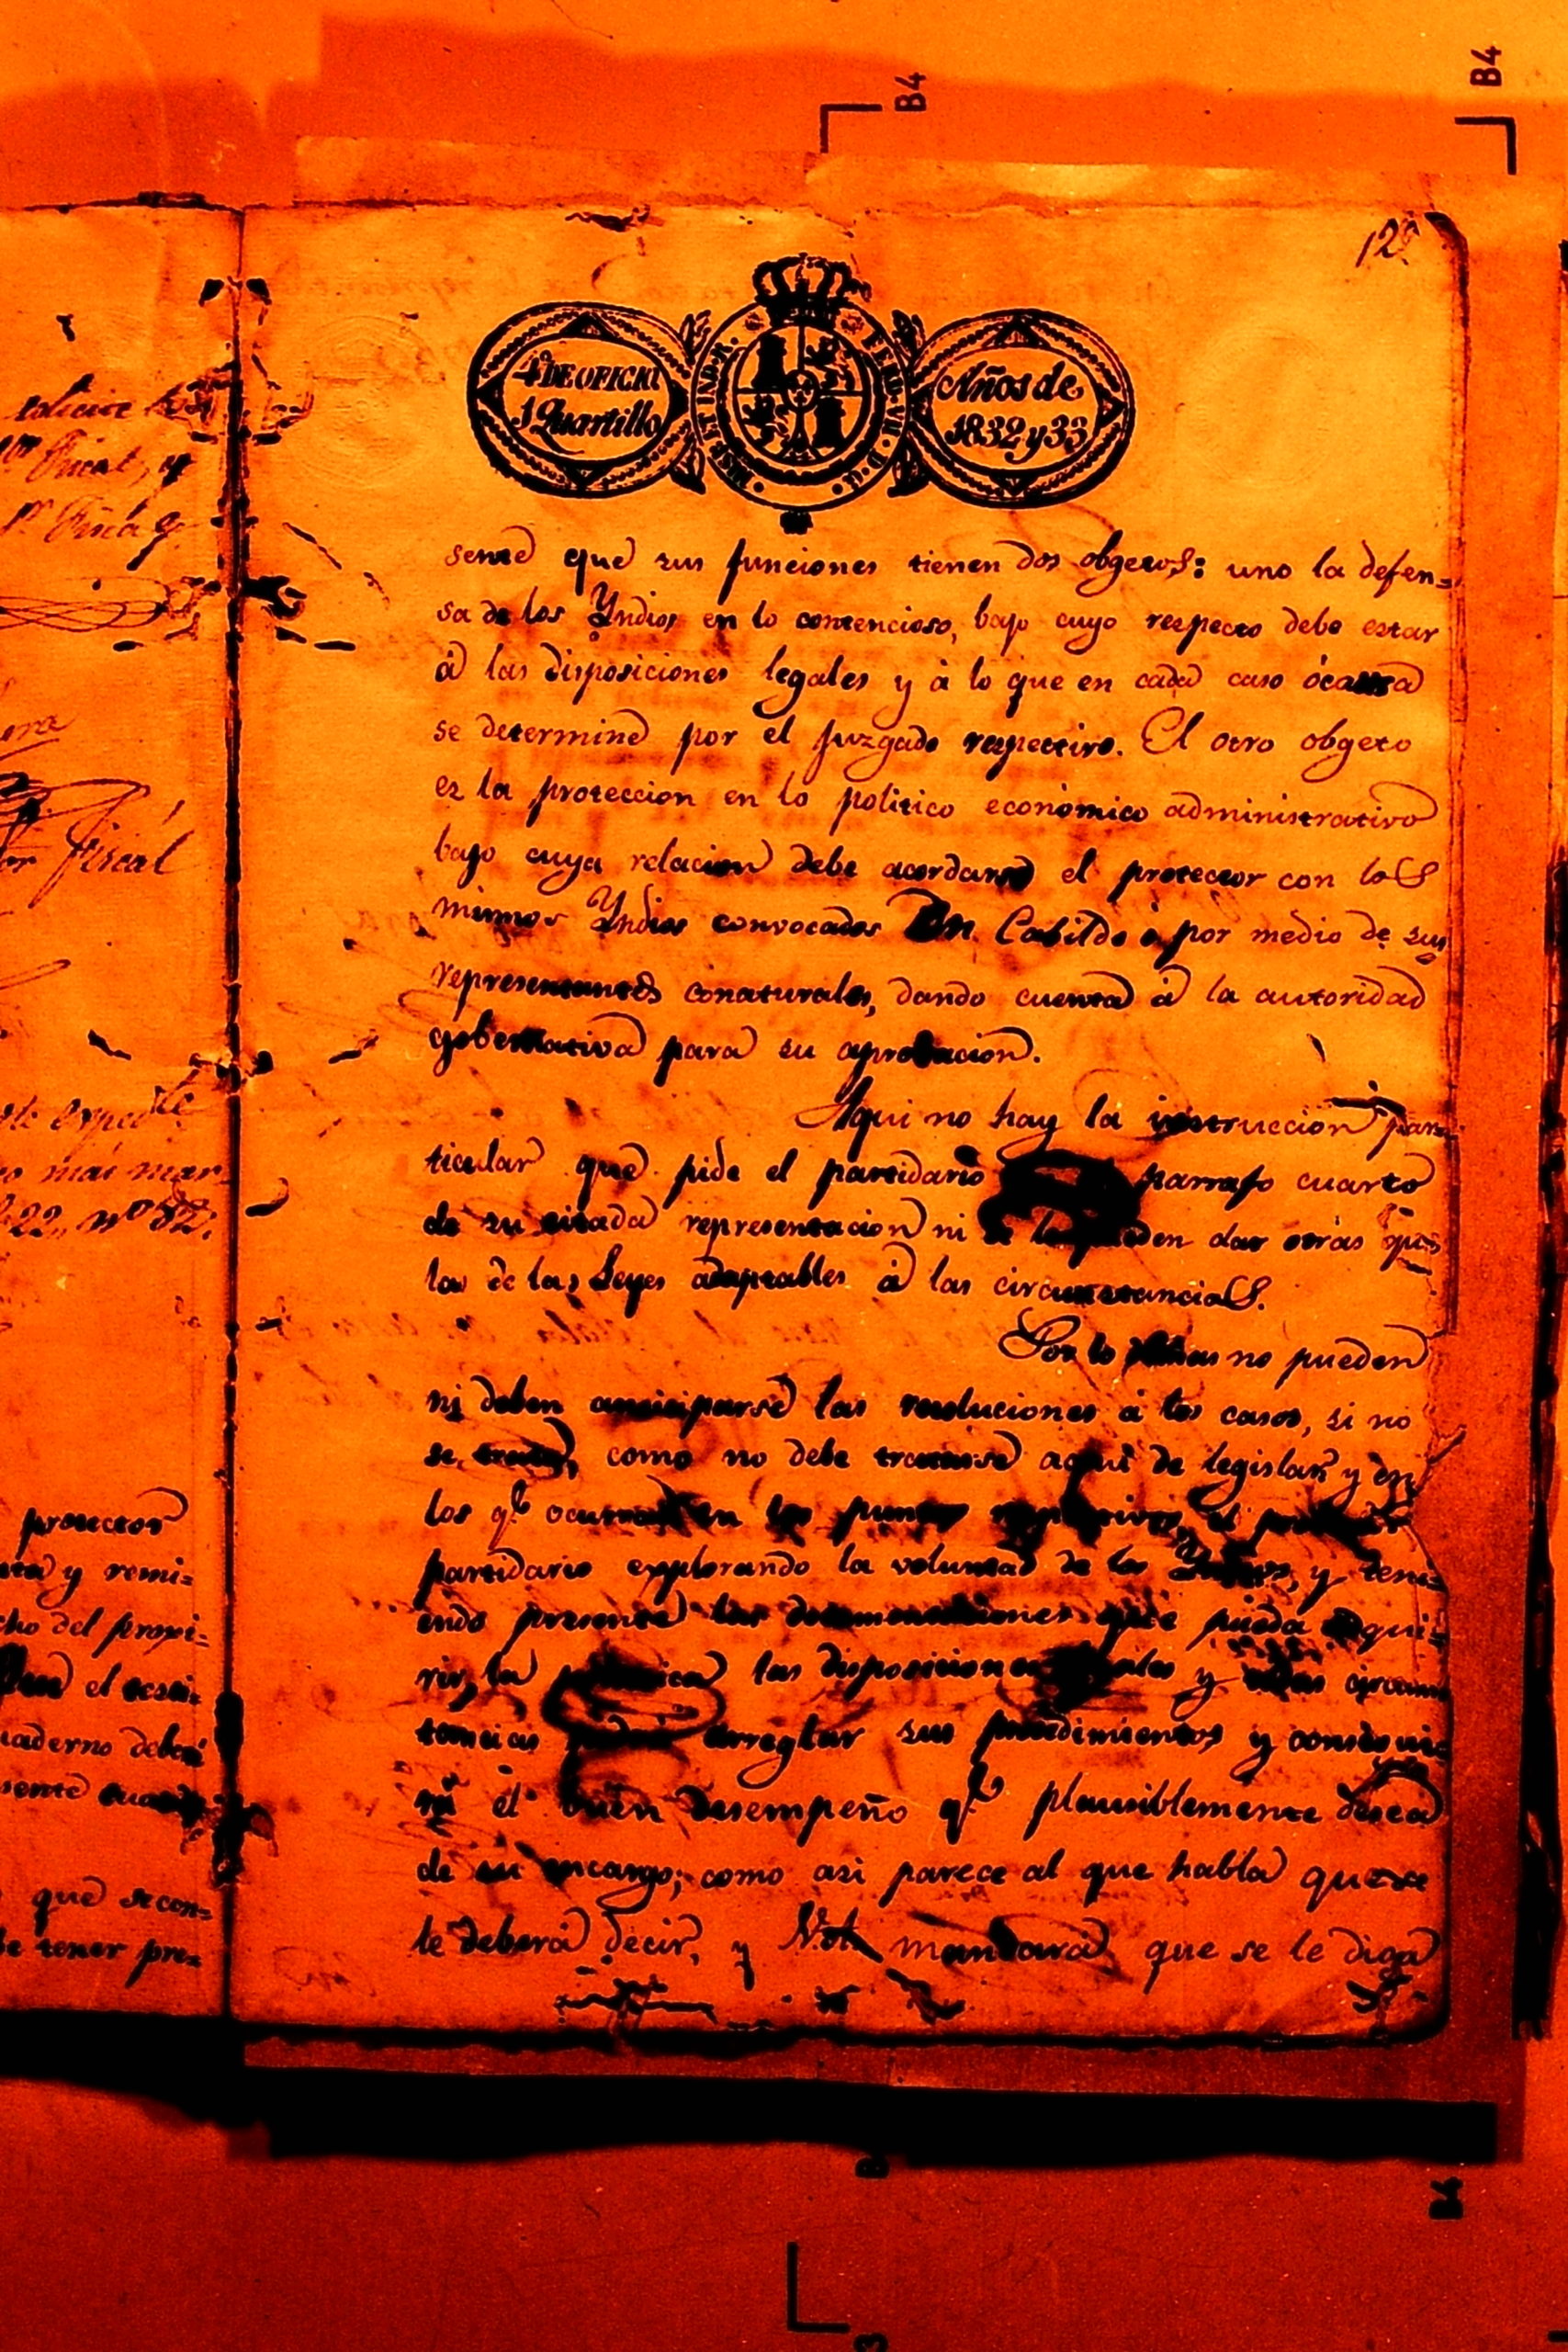 B4
B4
12
4º DE OFICIO
1 Quartillo
HISP. ET IND. R.
FERD. VII. D. G.
Años de
1832 y 33
sente que sus funciones tienen dos obgetos: uno la defen=
sa de los Yndios en lo contencioso, bajo cuyo respecto debe estar
á las disposiciones legales y á lo que en cada caso ócurra
se determine por el juzgado respectivo. El otro obgeto
es la proteccion en lo politico económico administrativo
bajo cuya relacion debe acordarse el protector con los
mismos Yndios convocados En Cabildo ó por medio de sus
representantes conaturales, dando cuenta á la autoridad
gobernativa para su aprobacion.
Aqui no hay la instruccion par=
ticular que pide el partidario parrafo cuarto
de su citada representacion ni se le pueden dar otras que
las de las Leyes adaptables á las circunstancias.
Por lo no pueden
ni deben anticiparse las resoluciones á los casos, si no
se como no debe tratarse aqui de legislar, y en
los qe. ocurran en los puntos respectivos, el
partidario explorando la voluntad de los Yndios, y teni=
endo presente las que pueda adqui=
rir, la las disposiciones legales y circuns
tancias arreglar sus procedimientos y consegui=
rá el buen desempeño qe. plausiblemente desea
de su encargo; como asi parece al que habla que se
le deberá decir, y mandará que se le diga
talicure
Fiscal, y
era
Fiscal
expedte.
mas mar
22, nº 52.
protector
y remi=
cho del propi=
el testi=
uaderno deberá
sente
que se con=
de tener pre=
B4